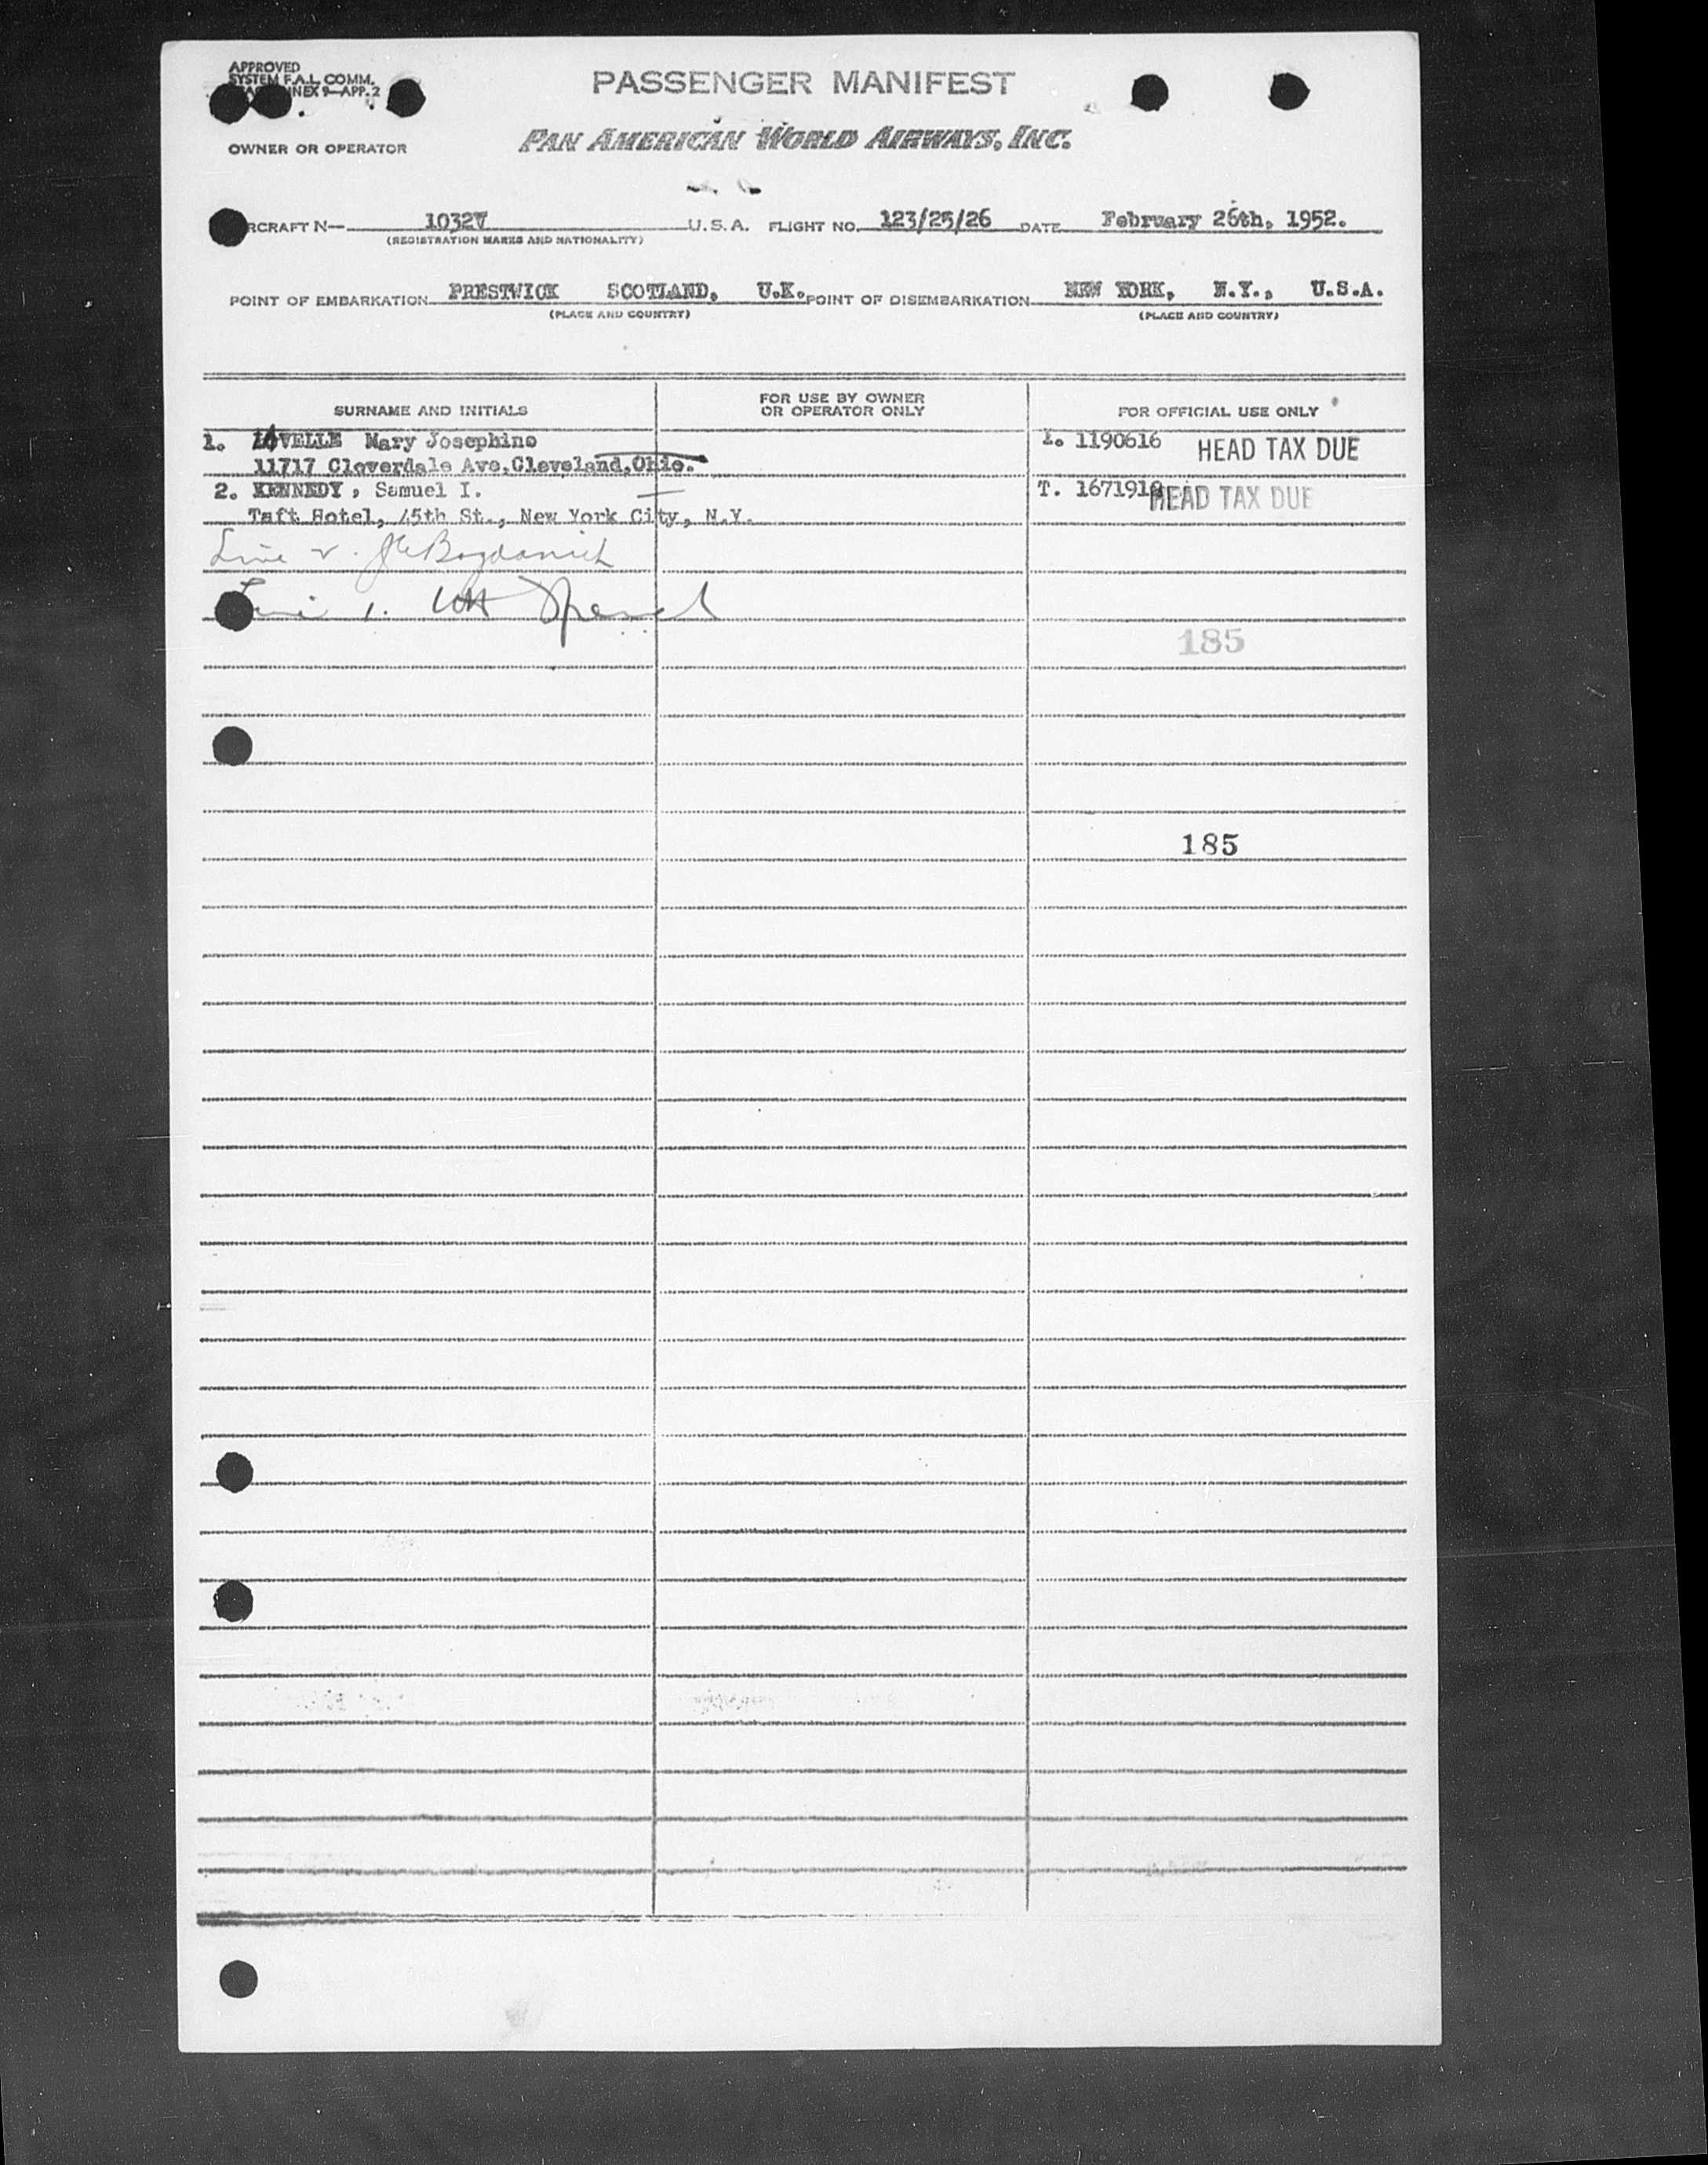 APPROVED
SYSTEM F.A.L. COMM.
ANNEX 9—APP. 2
PASSENGER MANIFEST
OWNER OR OPERATOR
PAN AMERICAN WORLD AIRWAYS, INC.
RCRAFT N— 1032V U.S.A. FLIGHT NO. 123/25/26 DATE February 26th, 1952.
(REGISTRATION MARKS AND NATIONALITY)
POINT OF EMBARKATION PRESTWICK SCOTLAND, U.K. POINT OF DISEMBARKATION NEW YORK, N.Y., U.S.A.
(PLACE AND COUNTRY) (PLACE AND COUNTRY)
SURNAME AND INITIALS FOR USE BY OWNER OR OPERATOR ONLY FOR OFFICIAL USE ONLY
1. LAVELLE Mary Josephine I. 1190616 HEAD TAX DUE
11717 Cloverdale Ave, Cleveland, Ohio.
2. KENNEDY, Samuel I. T. 1671918 HEAD TAX DUE
Taft Hotel, 45th St., New York City, N.Y.
Line 2. Bogdanich
Line 1.
185
185